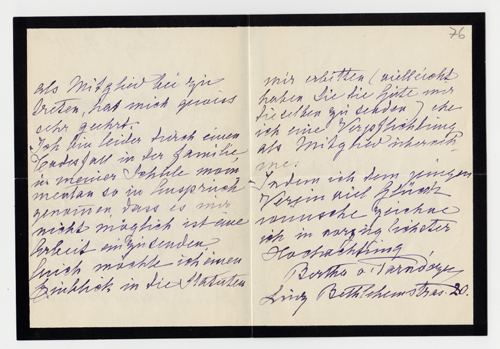 als Mitglied bei zu
treten, hat mich gewiss
sehr geehrt.
Ich bin leider durch einen
Todesfall in der Familie,
in meiner
mentan so in Anspruch
genommen, dass es mir
nicht möglich ist eine
Arbeit einzusenden,
Auch möchte ich einen
Einblick in die Statuten
76
mir erbitten (vielleicht
haben Sie die Güte mir
dieselben zu senden) ehe
ich eine Verpflichtung
als Mitglied überneh-
me.
Indem ich dem jungen
Verein viel Glück
wünsche zeichne
ich in vorzüglichster
Hochachtung
Bertha v. Tarnóczy
Linz Bethlehemstras. 20.